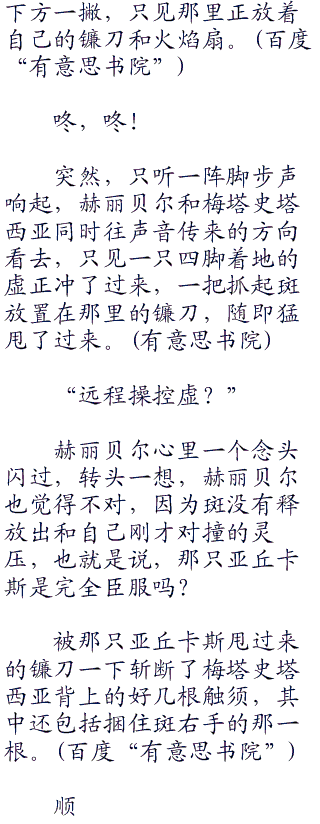 下方一撇，只见那里正放着
自己的镰刀和火焰扇。(百度
“有意思书院”)
咚，咚！
突然，只听一阵脚步声
响起，赫丽贝尔和梅塔史塔
西亚同时往声音传来的方向
看去，只见一只四脚着地的
虚正冲了过来，一把抓起斑
放置在那里的镰刀，随即猛
甩了过来。(有意思书院)
“远程操控虚？”
赫丽贝尔心里一个念头
闪过，转头一想，赫丽贝尔
也觉得不对，因为斑没有释
放出和自己刚才对撞的灵
压，也就是说，那只亚丘卡
斯是完全臣服吗？
被那只亚丘卡斯甩过来
的镰刀一下斩断了梅塔史塔
西亚背上的好几根触须，其
中还包括捆住斑右手的那一
根。(百度“有意思书院”)
顺